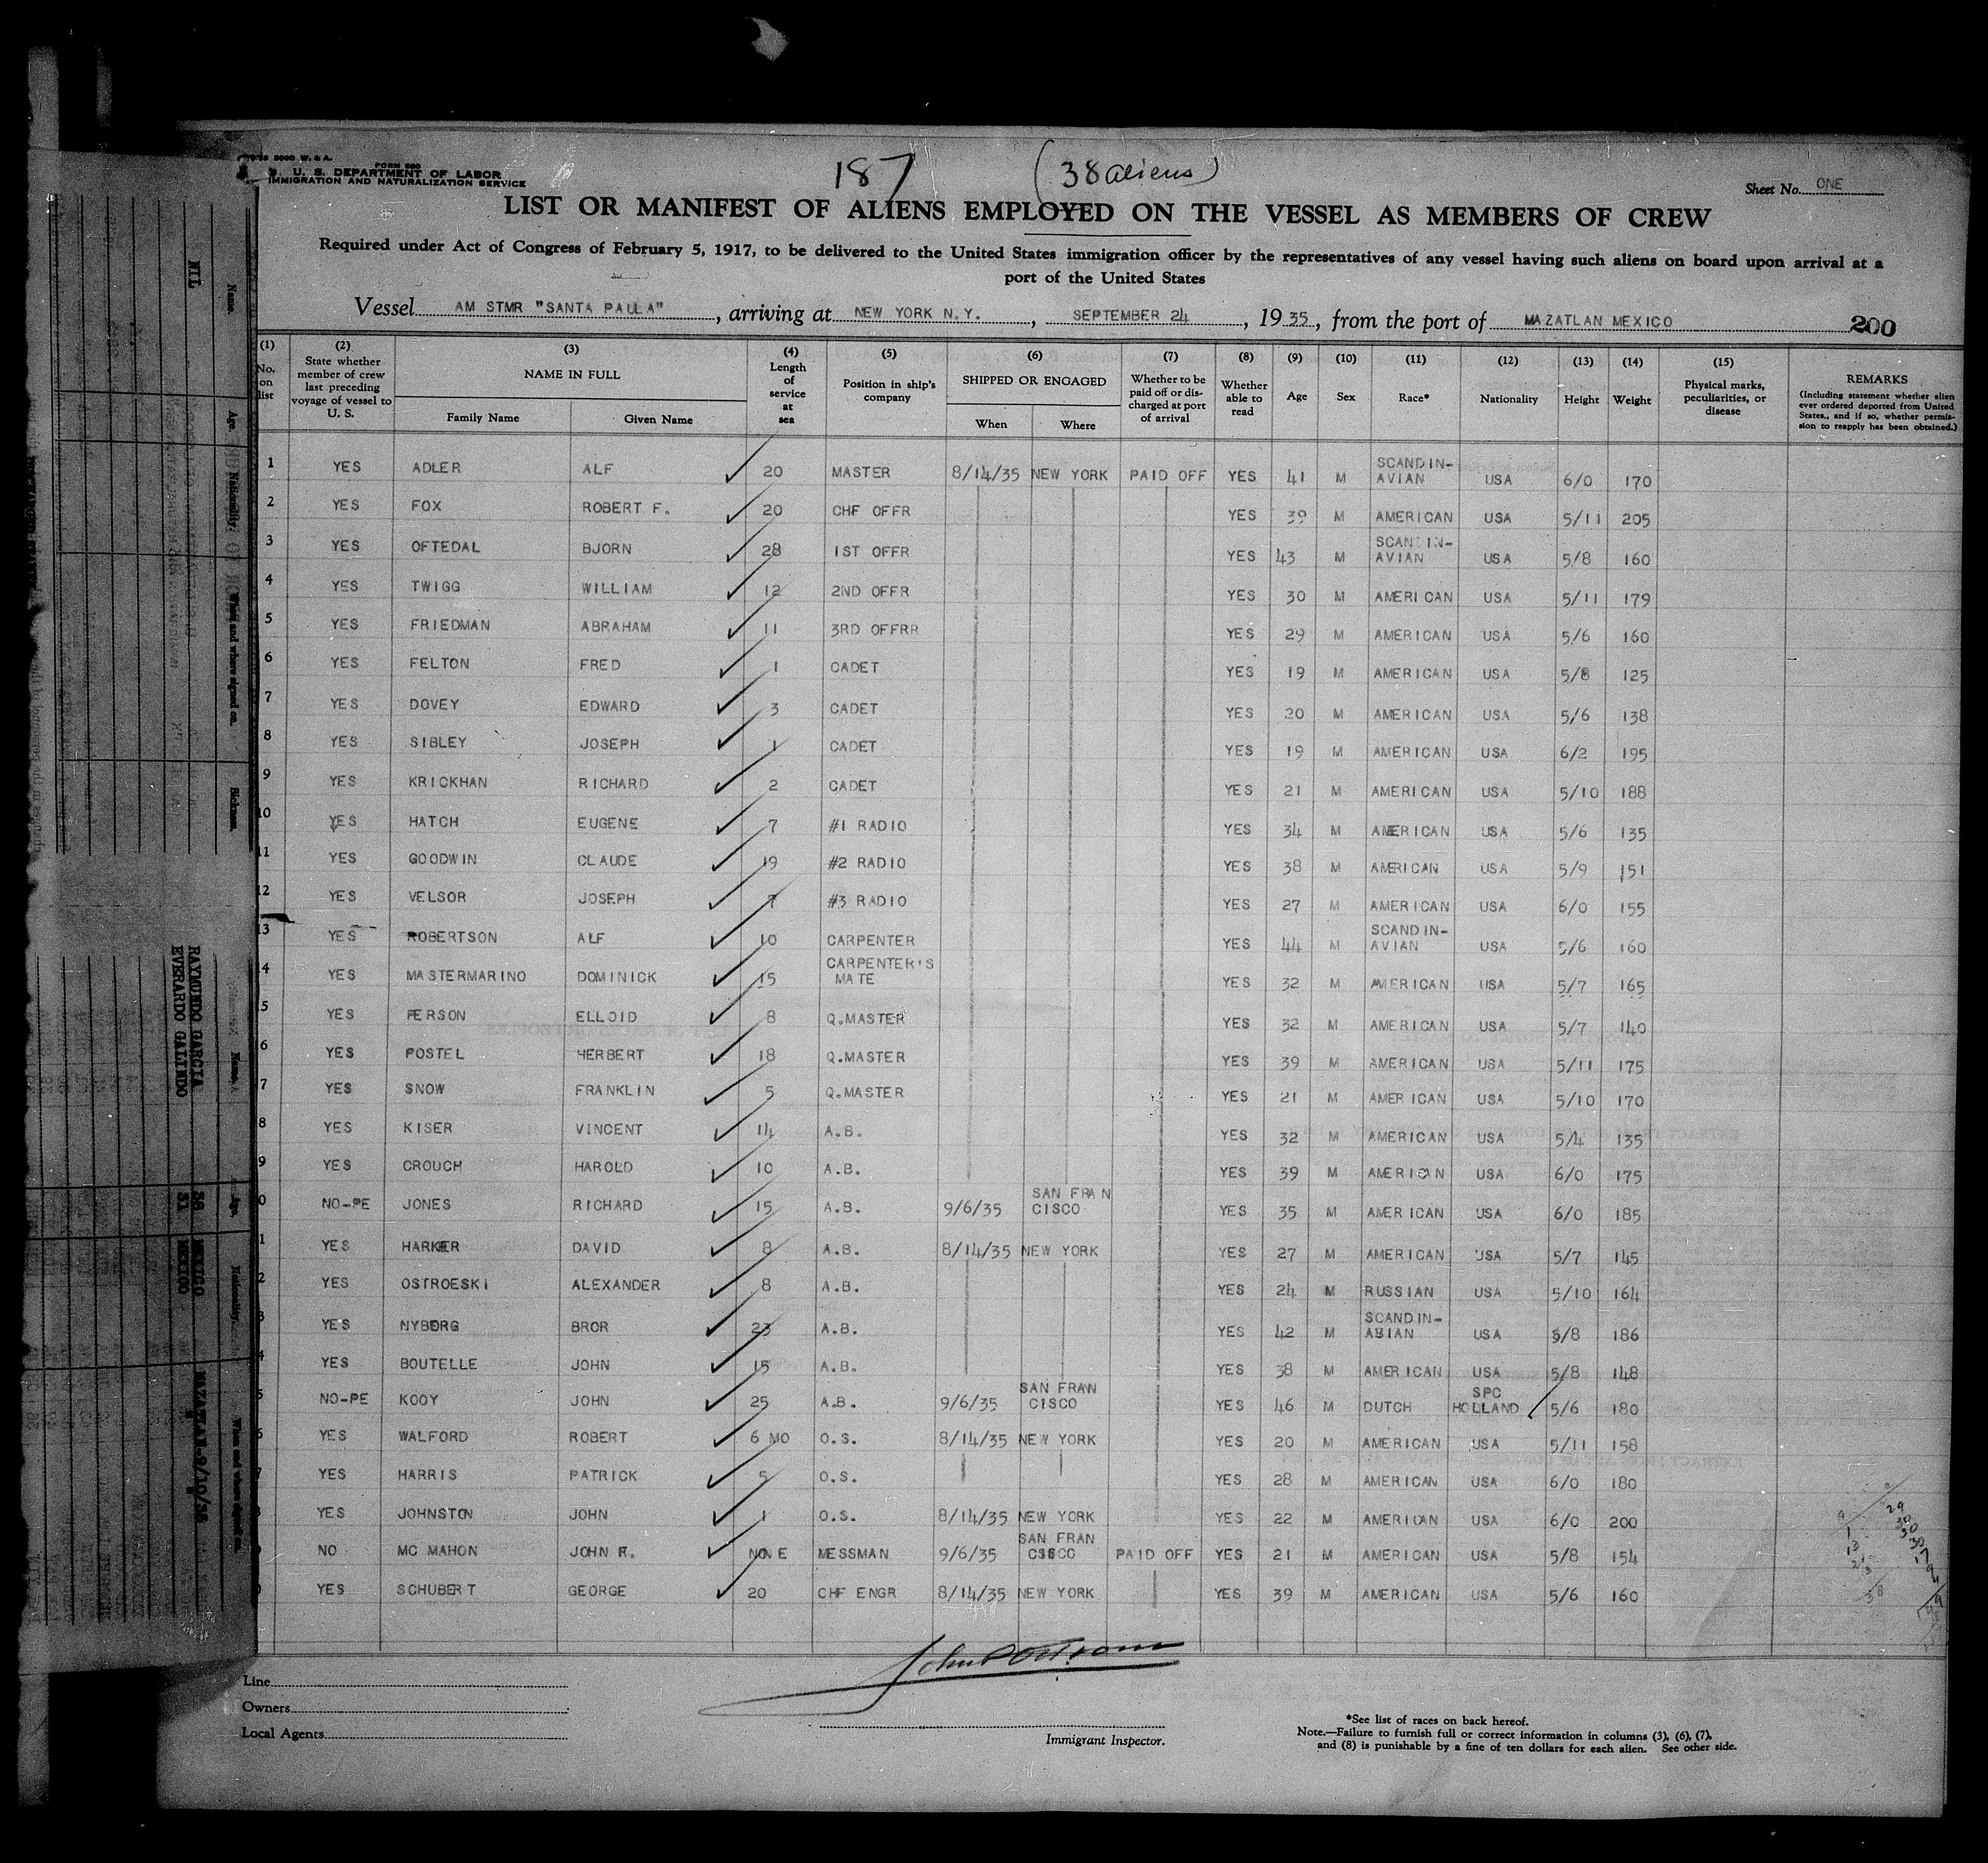 FORM 680
U. S. DEPARTMENT OF LABOR
IMMIGRATION AND NATURALIZATION SERVICE
187
(38 aliens)
Sheet No. ONE
LIST OR MANIFEST OF ALIENS EMPLOYED ON THE VESSEL AS MEMBERS OF CREW
Required under Act of Congress of February 5, 1917, to be delivered to the United States immigration officer by the representatives of any vessel having such aliens on board upon arrival at a
port of the United States
Vessel AM STMR "SANTA PAULA", arriving at NEW YORK N.Y., SEPTEMBER 24, 1935, from the port of MAZATLAN MEXICO 200
(1) No. on list (2) State whether member of crew last preceding voyage of vessel to U. S. (3) NAME IN FULL Family Name Given Name (4) Length of service at sea (5) Position in ship's company (6) SHIPPED OR ENGAGED When Where (7) Whether to be paid off or discharged at port of arrival (8) Whether able to read (9) Age (10) Sex (11) Race* (12) Nationality (13) Height (14) Weight (15) Physical marks, peculiarities, or disease REMARKS (Including statement whether alien ever ordered deported from United States, and if so, whether permission to reapply has been obtained.)
1 YES ADLER ALF 20 MASTER 8/14/35 NEW YORK PAID OFF YES 41 M SCANDIN-AVIAN USA 6/0 170
2 YES FOX ROBERT F. 20 CHF OFFR YES 39 M AMERICAN USA 5/11 205
3 YES OFTEDAL BJORN 28 1ST OFFR YES 43 M SCANDIN-AVIAN USA 5/8 160
4 YES TWIGG WILLIAM 12 2ND OFFR YES 30 M AMERICAN USA 5/11 179
5 YES FRIEDMAN ABRAHAM 11 3RD OFFRR YES 29 M AMERICAN USA 5/6 160
6 YES FELTON FRED 1 CADET YES 19 M AMERICAN USA 5/8 125
7 YES DOVEY EDWARD 3 CADET YES 20 M AMERICAN USA 5/6 138
8 YES SIBLEY JOSEPH 1 CADET YES 19 M AMERICAN USA 6/2 195
9 YES KRICKHAN RICHARD 2 CADET YES 21 M AMERICAN USA 5/10 188
10 YES HATCH EUGENE 7 #1 RADIO YES 34 M AMERICAN USA 5/6 135
11 YES GOODWIN CLAUDE 19 #2 RADIO YES 38 M AMERICAN USA 5/9 151
12 YES VELSOR JOSEPH 7 #3 RADIO YES 27 M AMERICAN USA 6/0 155
13 YES ROBERTSON ALF 10 CARPENTER YES 44 M SCANDIN-AVIAN USA 5/6 160
4 YES MASTERMARINO DOMINICK 15 CARPENTER'S MATE YES 32 M AMERICAN USA 5/7 165
5 YES PERSON ELLOID 8 Q.MASTER YES 32 M AMERICAN USA 5/7 140
6 YES POSTEL HERBERT 18 Q.MASTER YES 39 M AMERICAN USA 5/11 175
7 YES SNOW FRANKLIN 5 Q.MASTER YES 21 M AMERICAN USA 5/10 170
8 YES KISER VINCENT 14 A.B. YES 32 M AMERICAN USA 5/4 135
9 YES CROUCH HAROLD 10 A.B. YES 39 M AMERICAN USA 6/0 175
0 NO-PE JONES RICHARD 15 A.B. 9/6/35 SAN FRAN CISCO YES 35 M AMERICAN USA 6/0 185
1 YES HARKER DAVID 8 A.B. 8/14/35 NEW YORK YES 27 M AMERICAN USA 5/7 145
2 YES OSTROESKI ALEXANDER 8 A.B. YES 24 M RUSSIAN USA 5/10 164
3 YES NYBORG BROR 23 A.B. YES 42 M SCANDIN-ABIAN USA 5/8 186
4 YES BOUTELLE JOHN 15 A.B. YES 38 M AMERICAN USA 5/8 148
5 NO-PE KOOY JOHN 25 A.B. 9/6/35 SAN FRAN CISCO YES 46 M DUTCH SPC HOLLAND 5/6 180
6 YES WALFORD ROBERT 6 MO O.S. 8/14/35 NEW YORK YES 20 M AMERICAN USA 5/11 158
7 YES HARRIS PATRICK 5 O.S. YES 28 M AMERICAN USA 6/0 180
8 YES JOHNSTON JOHN 1 O.S. 8/14/35 NEW YORK YES 22 M AMERICAN USA 6/0 200
9 NO MC MAHON JOHN R. NONE MESSMAN 9/6/35 SAN FRAN CISCO PAID OFF YES 21 M AMERICAN USA 5/8 154
0 YES SCHUBERT GEORGE 20 CHF ENGR 8/14/35 NEW YORK YES 39 M AMERICAN USA 5/6 160
Line
Owners
Local Agents
Immigrant Inspector.
*See list of races on back hereof.
Note.—Failure to furnish full or correct information in columns (3), (6), (7),
and (8) is punishable by a fine of ten dollars for each alien. See other side.
NIL
Name. Age. Nationality. When and where signed on. Sickness.
RAYMUNDO GARCIA 38 MEXICO MAZATLAN 9/10/35
EVERARDO GALINDO 31 MEXICO